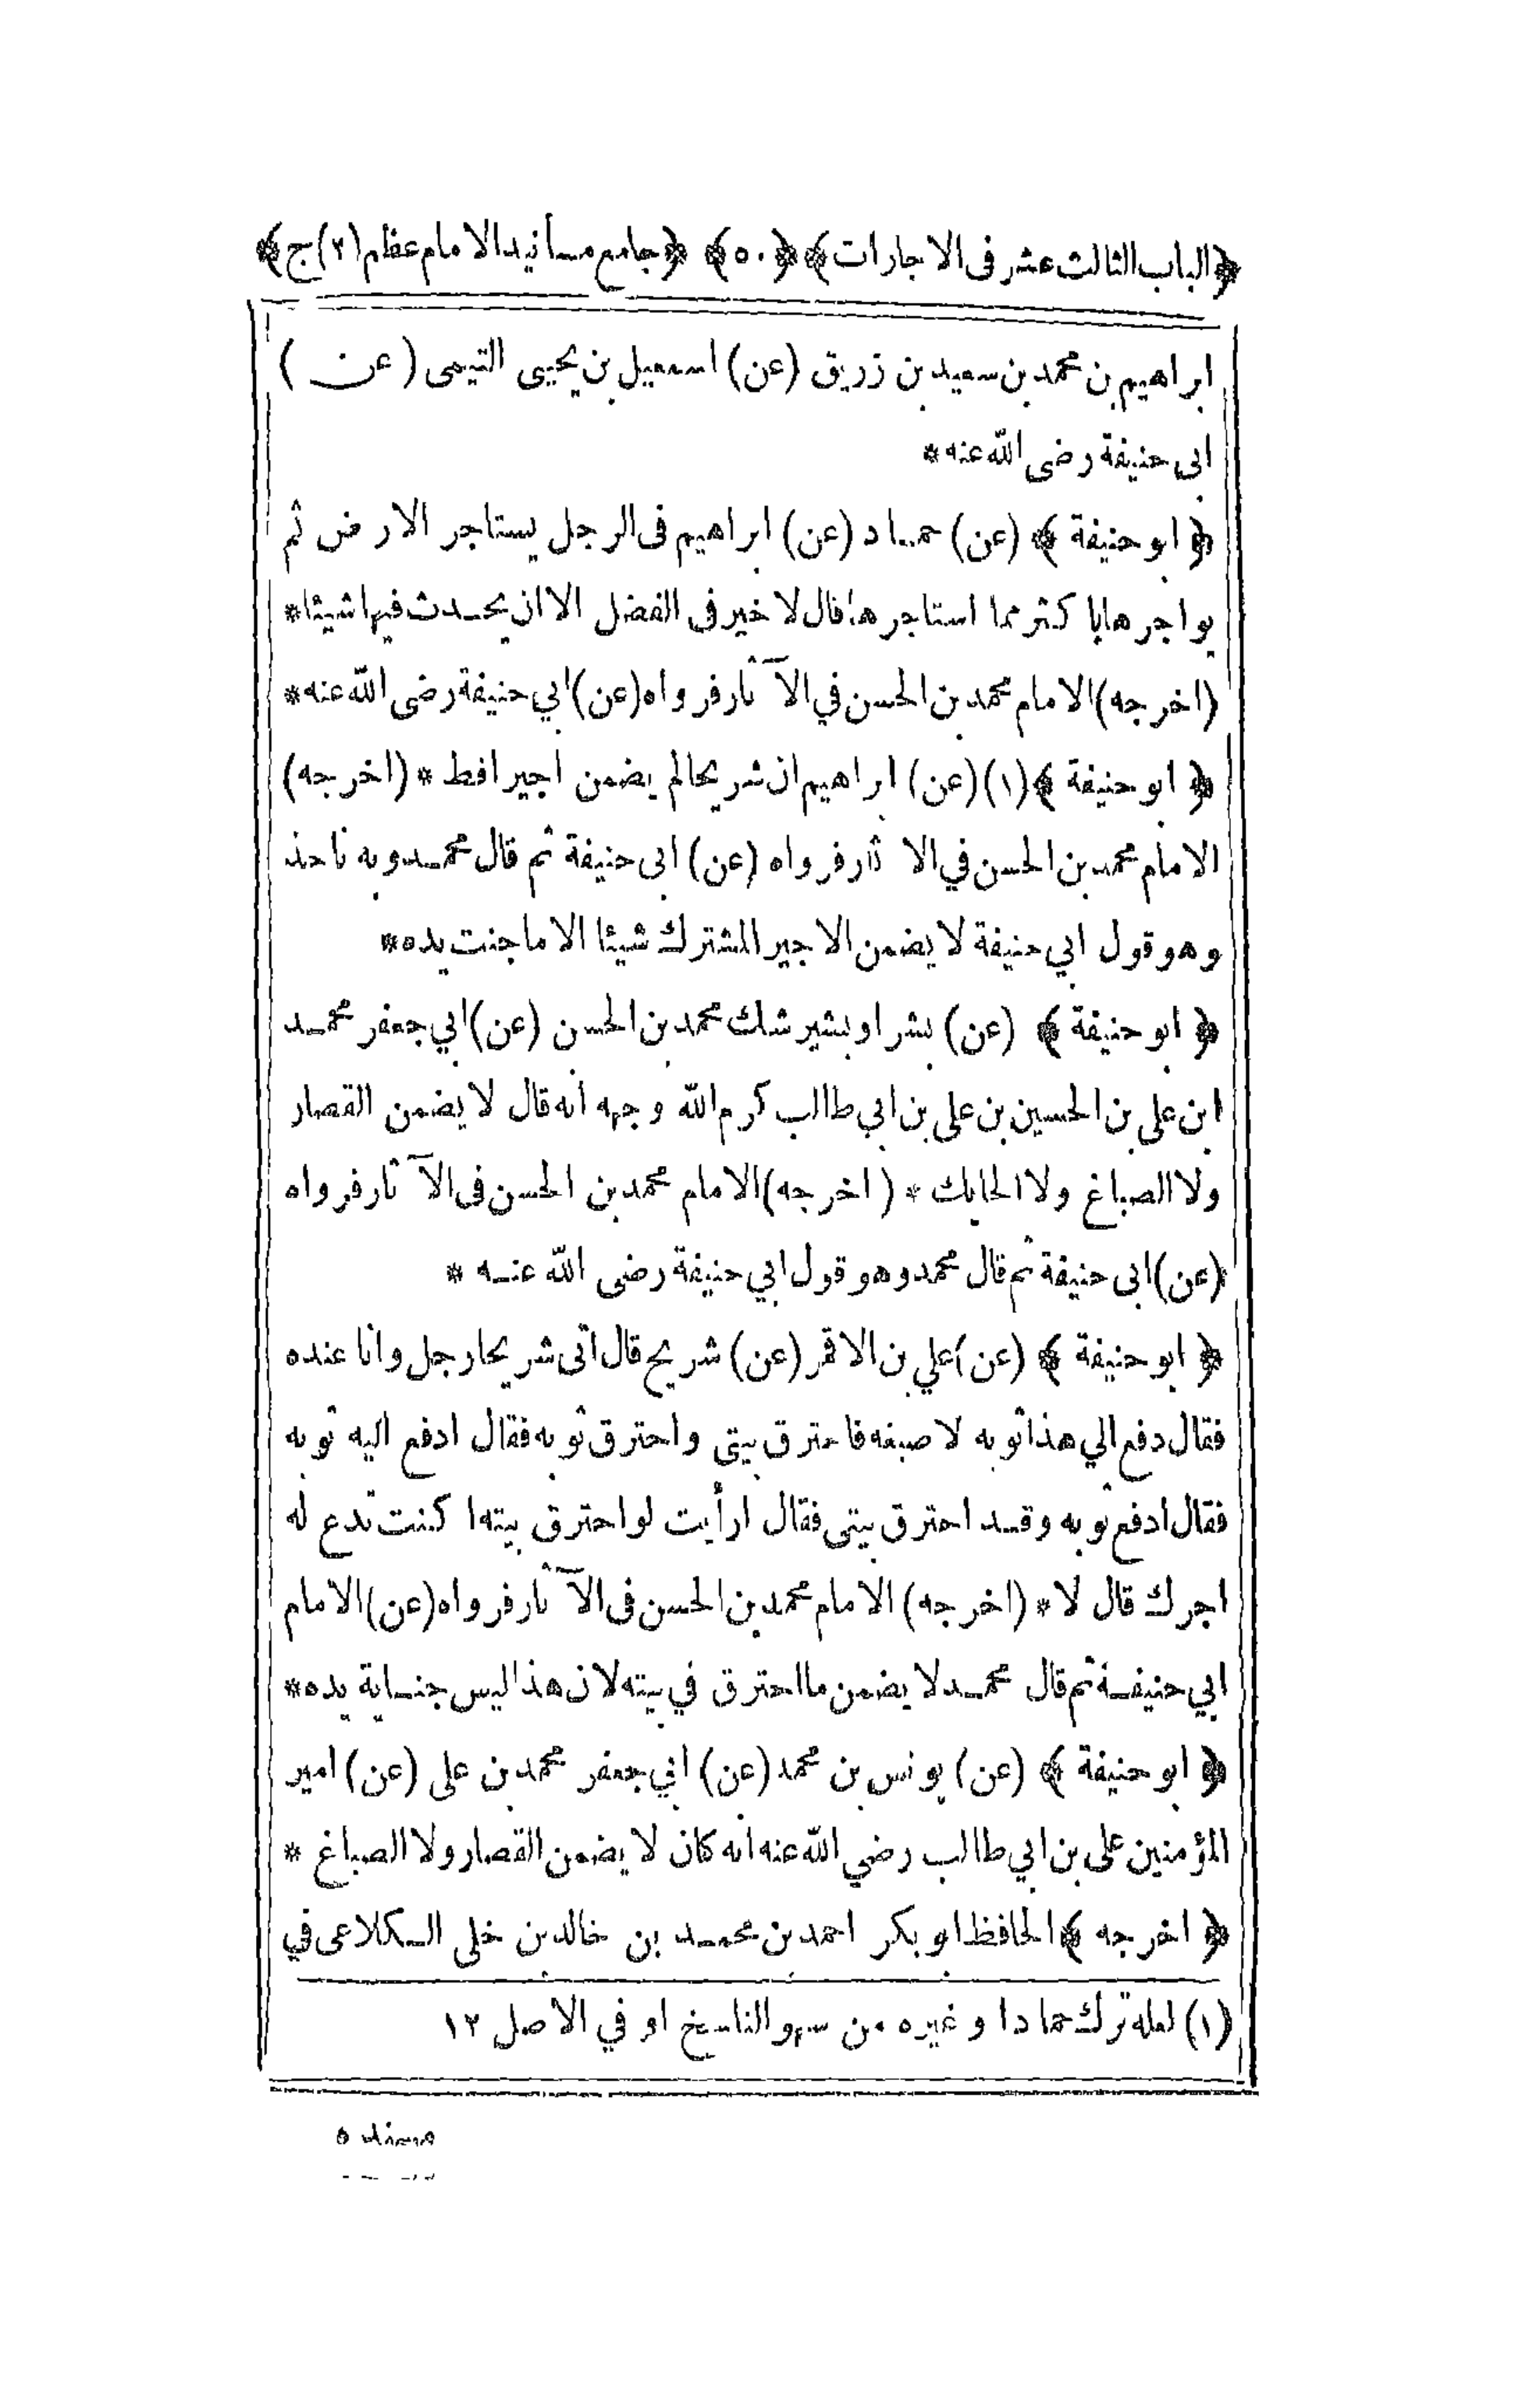 ﴿الباب الثالث عشر فى الاجارات﴾ ﴿٥٠﴾ ﴿جامع مسانيد الامام عظم (٢) ج﴾
ابراهيم بن محمد بن سعيد بن زريق (عن) اسمعيل بن يحيى التيمى (عن)
ابى حنيفة رضى الله عنه *
﴿ابو حنيفة﴾ (عن) حماد (عن) ابراهيم فى الرجل يستاجر الارض ثم
يواجرها باكثر مما استاجرها قال لا خير فى الفضل الا ان يحدث فيها شيئا *
(اخرجه) الامام محمد بن الحسن في الآثار فرواه (عن) ابي حنيفة رضى الله عنه *
﴿ابو حنيفة﴾ (١) (عن) ابراهيم ان شريحا لم يضمن اجيرا قط * (اخرجه)
الامام محمد بن الحسن في الاثار فرواه (عن) ابى حنيفة ثم قال محمد وبه ناخذ
وهو قول ابي حنيفة لا يضمن الاجير المشترك شيئا الا ما جنت يده *
﴿ابو حنيفة﴾ (عن) بشر او بشير شك محمد بن الحسن (عن) ابي جعفر محمد
ابن على بن الحسين بن على بن ابي طالب كرم الله وجهه انه قال لا يضمن القصار
ولا الصباغ ولا الحايك * (اخرجه) الامام محمد بن الحسن فى الآثار فرواه
(عن) ابى حنيفة ثم قال محمد وهو قول ابي حنيفة رضى الله عنه *
﴿ابو حنيفة﴾ (عن) علي بن الاقمر (عن) شريح قال اتى شريحا رجل وانا عنده
فقال دفع الي هذا ثوبه لا صبغه فاحترق بيتى واحترق ثوبه فقال ادفع اليه ثوبه
فقال ادفع ثوبه وقد احترق بيتى فقال ارأيت لو احترق بيته ا كنت تدع له
اجرك قال لا * (اخرجه) الامام محمد بن الحسن فى الآثار فرواه (عن) الامام
ابي حنيفة ثم قال محمد لا يضمن ما احترق في بيته لان هذا ليس جناية يده *
﴿ابو حنيفة﴾ (عن) يونس بن محمد (عن) ابي جعفر محمد بن على (عن) امير
المؤمنين على بن ابي طالب رضي الله عنه انه كان لا يضمن القصار ولا الصباغ *
﴿اخرجه﴾ الحافظ ابو بكر احمد بن محمد بن خالد بن خلى الكلاعى في
(١) لعله ترك حمادا وغيره من سهو الناسخ او في الاصل ١٢
مسنده